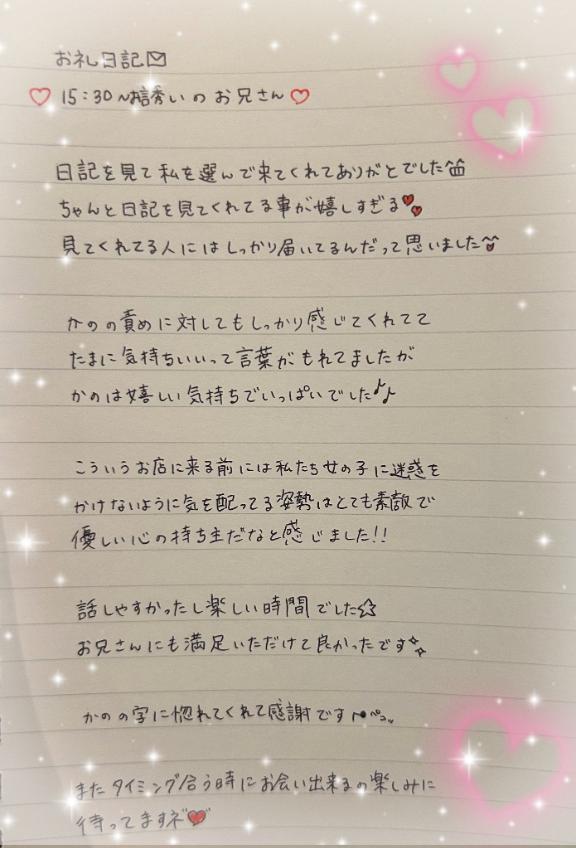 お礼日記✉
♡ 15:30〜結誘いのお兄さん♡
日記を見て私を選んで来てくれてありがとでした
ちゃんと日記を見てくれてる事が嬉しすぎる
見てくれてる人にはしっかり届いてるんだって思いました
かのの責めに対してもしっかり感じてくれてて
たまに気持ちいいって言葉がもれてましたが
かのは嬉しい気持ちでいっぱいでした♪
こういうお店に来る前には私たち女の子に迷惑を
かけないように気を配ってる姿勢はとても素敵で
優しい心の持ち主だなと感じました!!
話しやすかったし楽しい時間でした☆
お兄さんにも満足いただけて良かったです
かのの字に惚れてくれて感謝です
またタイミング合う時にお会い出来るの楽しみに
待ってますネ♥